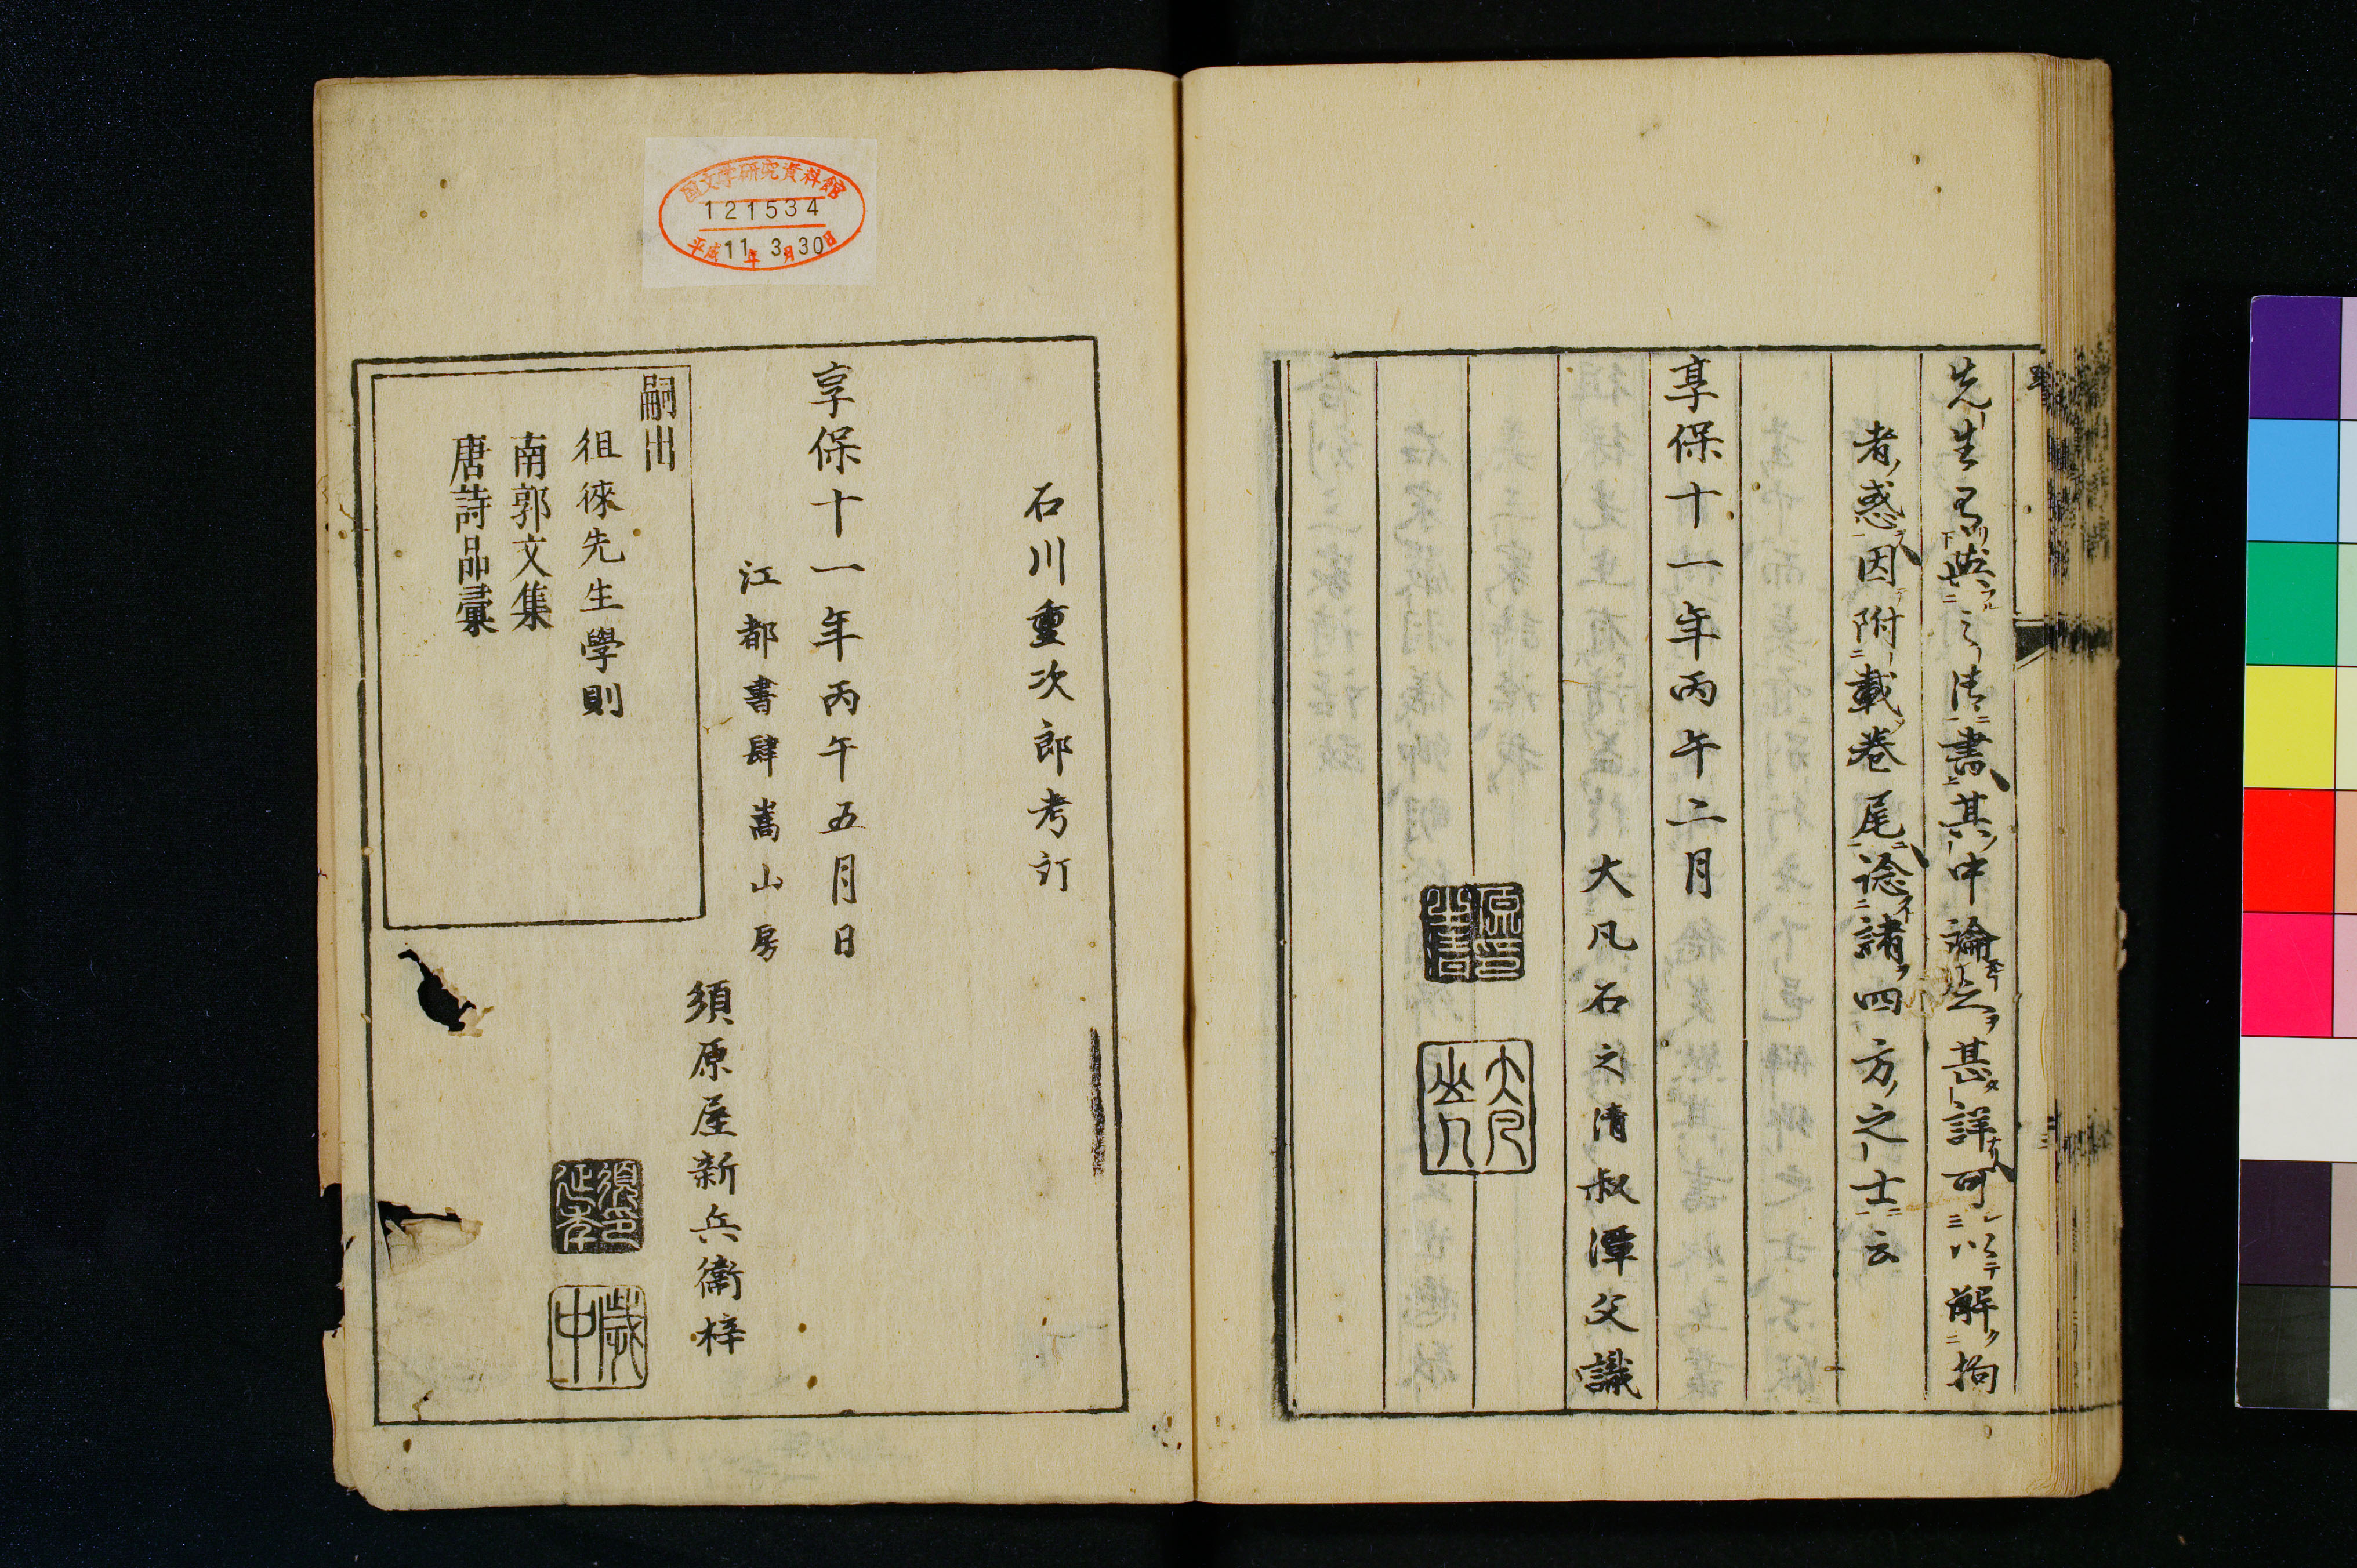 先生有與之清書其中論之甚詳可以解拘
者惑因附載卷尾諗諸四方之士云
享保十一年丙午二月
大凡石之清叔潭父識
石川重次郎考訂
享保十一年丙午五月日
江都書肆嵩山房
須原屋新兵衛梓
嗣出
徂徠先生學則
南郭文集
唐詩品彙
国文学研究資料館
121534
平成11年3月30日